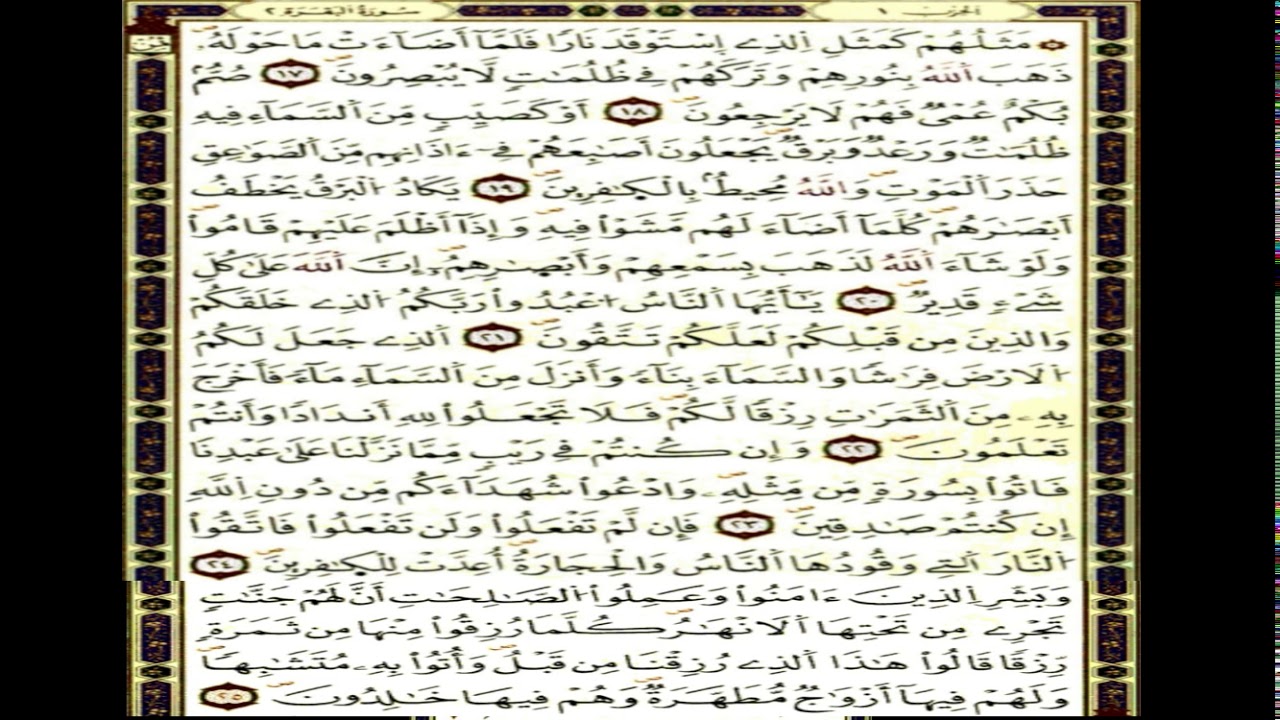 سورة البقرة ٢ الحزب ١
ثمن
مَثَلُهُمْ كَمَثَلِ اِ۬لذِے اِ۪سْتَوْقَدَ نَاراٗ فَلَمَّآ أَضَآءَتْ مَا حَوْلَهُۥ
ذَهَبَ اَ۬للَّهُ بِنُورِهِمْ وَتَرَكَهُمْ فِے ظُلُمَٰتٖ لَّا يُبْصِرُونَۖ ١٧ صُمُّۢ
بُكْمٌ عُمْيٞ فَهُمْ لَا يَرْجِعُونَۖ ١٨ أَوْ كَصَيِّبٖ مِّنَ اَ۬لسَّمَآءِ فِيهِ
ظُلُمَٰتٞ وَرَعْدٞ وَبَرْقٞۖ يَجْعَلُونَ أَصَٰبِعَهُمْ فِےٓ ءَاذَانِهِم مِّنَ اَ۬لصَّوَٰعِقِ
حَذَرَ اَ۬لْمَوْتِۖ وَاللَّهُ مُحِيطُۢ بِالْكٰ۪فِرِينَۖ ١٩ يَكَادُ اُ۬لْبَرْقُ يَخْطَفُ
أَبْصَٰرَهُمْۖ كُلَّمَآ أَضَآءَ لَهُم مَّشَوْاْ فِيهِ وَإِذَآ أَظْلَمَ عَلَيْهِمْ قَامُواْۖ
وَلَوْ شَآءَ اَ۬للَّهُ لَذَهَبَ بِسَمْعِهِمْ وَأَبْصٰ۪رِهِمُۥٓۖ إِنَّ اَ۬للَّهَ عَلَىٰ كُلِّ
شَےْءٖ قَدِيرٞۖ ٢٠ يَٰٓأَيُّهَا اَ۬لنَّاسُ اُ۟عْبُدُواْ رَبَّكُمُ اُ۬لذِے خَلَقَكُمْ
وَالذِينَ مِن قَبْلِكُمْ لَعَلَّكُمْ تَتَّقُونَۖ ٢١ اَ۬لذِے جَعَلَ لَكُمُ
اُ۬لَارْضَ فِرَٰشاٗ وَالسَّمَآءَ بِنَآءٗ وَأَنزَلَ مِنَ اَ۬لسَّمَآءِ مَآءٗ فَأَخْرَجَ
بِهِۦ مِنَ اَ۬لثَّمَرَٰتِ رِزْقاٗ لَّكُمْۖ فَلَا تَجْعَلُواْ لِلهِ أَندَاداٗ وَأَنتُمْ
تَعْلَمُونَۖ ٢٢ وَإِن كُنتُمْ فِے رَيْبٖ مِّمَّا نَزَّلْنَا عَلَىٰ عَبْدِنَا
فَاتُواْ بِسُورَةٖ مِّن مِّثْلِهِۦۖ وَادْعُواْ شُهَدَآءَكُم مِّن دُونِ اِ۬للَّهِ
إِن كُنتُمْ صَٰدِقِينَۖ ٢٣ فَإِن لَّمْ تَفْعَلُواْ وَلَن تَفْعَلُواْ فَاتَّقُواْ
اُ۬لنَّارَ اَ۬لتِے وَقُودُهَا اَ۬لنَّاسُ وَالْحِجَارَةُۖ أُعِدَّتْ لِلْكٰ۪فِرِينَۖ ٢٤
وَبَشِّرِ اِ۬لذِينَ ءَامَنُواْ وَعَمِلُواْ اُ۬لصَّٰلِحَٰتِ أَنَّ لَهُمْ جَنَّٰتٖ
تَجْرِے مِن تَحْتِهَا اَ۬لَانْهَٰرُۖ كُلَّمَا رُزِقُواْ مِنْهَا مِن ثَمَرَةٖ
رِّزْقاٗ قَالُواْ هَٰذَا اَ۬لذِے رُزِقْنَا مِن قَبْلُۖ وَأُتُواْ بِهِۦ مُتَشَٰبِهاٗۖ
وَلَهُمْ فِيهَآ أَزْوَٰجٞ مُّطَهَّرَةٞۖ وَهُمْ فِيهَا خَٰلِدُونَۖ ٢٥